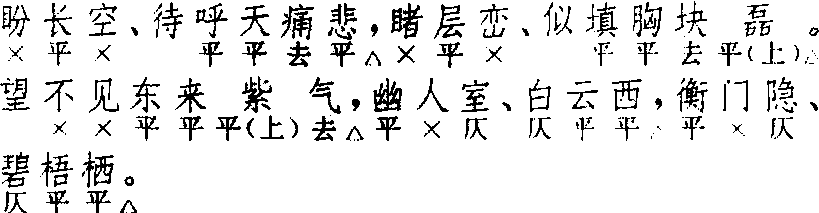 盼长空、待呼天痛悲，睹层峦、似填胸块磊。
× 平 × 平 平 去 平 △ × 平 × 平 平 去 平(上)△
望不见东来紫气，幽人室、白云西，衡门隐、
× × 平 平 平(上)去 △ 平 × 仄 仄 平 平 △ 平 × 仄
碧梧栖。
仄 平 平 △